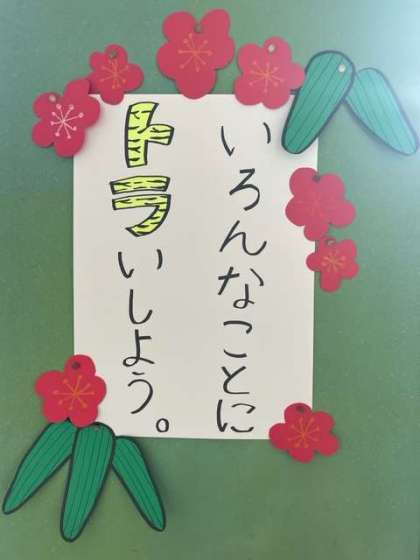 いろんなことに
トライしよう。